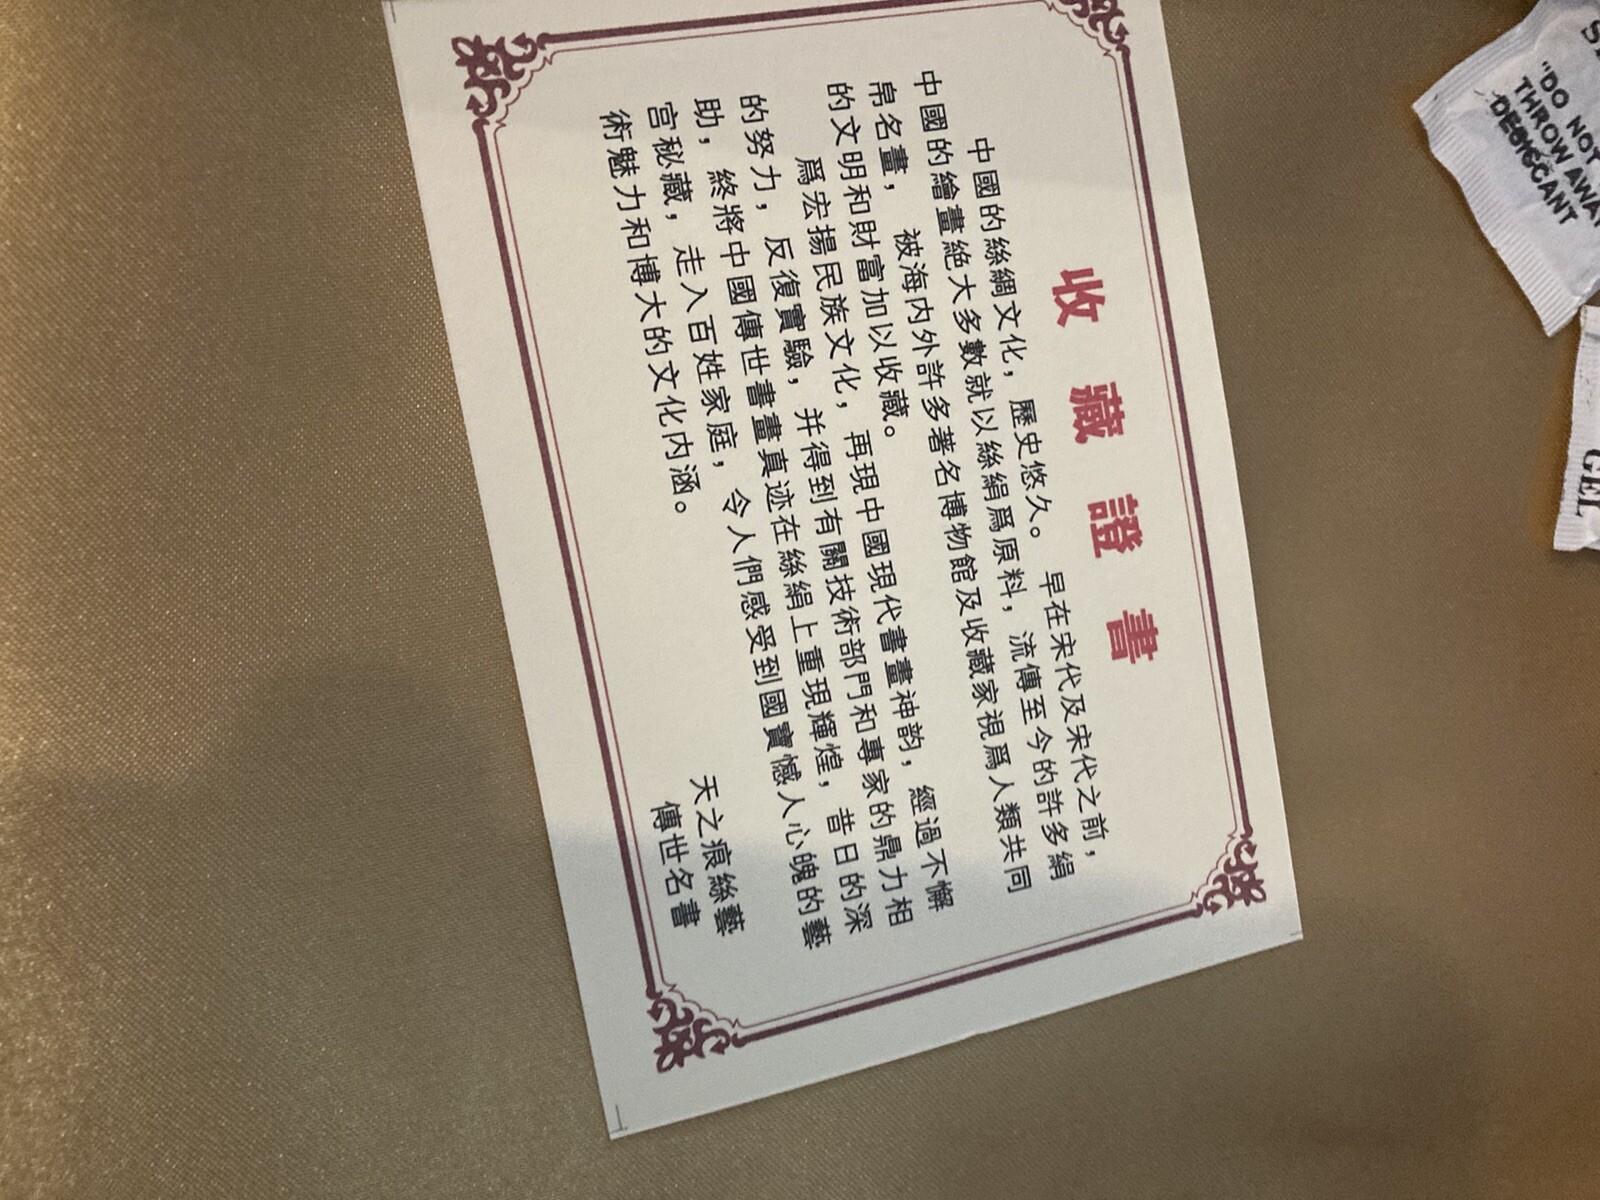 收藏證書
中國的絲綢文化，歷史悠久。早在宋代及宋代之前，
中國的繪畫絕大多數就以絲絹爲原料，流傳至今的許多絹
帛名畫，被海内外許多著名博物館及收藏家視爲人類共同
的文明和財富加以收藏。
爲宏揚民族文化，再現中國現代書畫神韵，經過不懈
的努力，反復實驗，并得到有關技術部門和專家的鼎力相
助，終將中國傳世書畫真迹在絲絹上重現輝煌，昔日的深
宫秘藏，走入百姓家庭，令人們感受到國寶憾人心魄的藝
術魅力和博大的文化内涵。
天之痕絲藝
傳世名書
"DO NOT
THROW AWAY
DESICCANT
GEL